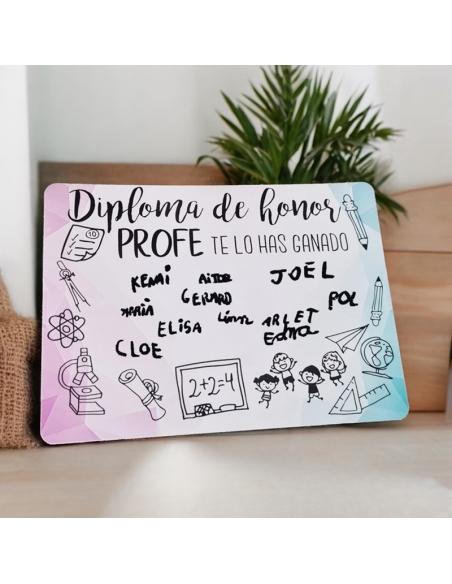 Diploma de honor
PROFE TE LO HAS GANADO
10
KENAI AITOR JOEL
MARIA GERARD POL
ELISA ARLET
CLOE Edna
2+2=4